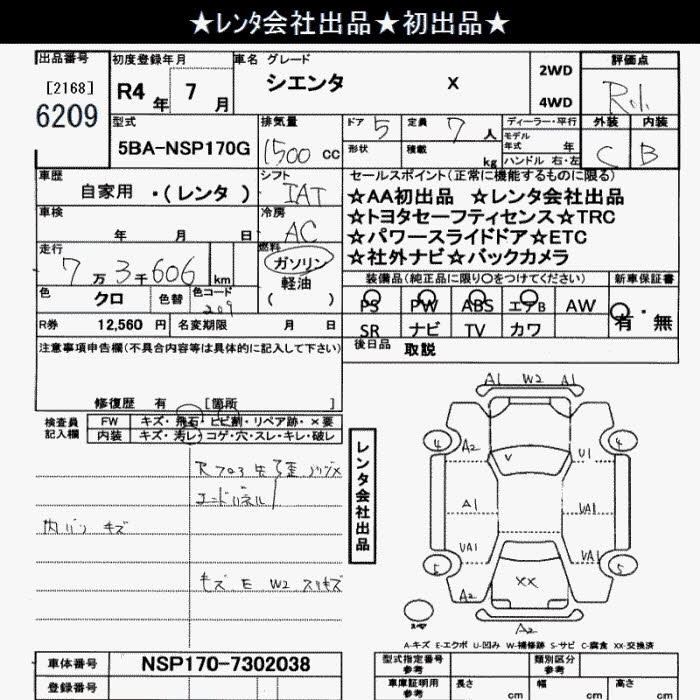 ★レンタ会社出品★初出品★
出品番号
[2168]
6209
初度登録年月
R4年 7月
車名 グレード
シエンタ X
2WD
4WD
評価点
型式
5BA-NSP170G
排気量
1500 cc
ドア 5
定員 7人
形状
積載 kg
ディーラー・平行
モデル年式 年
ハンドル 右・左
外装 内装
C B
車歴
自家用 ・(レンタ)
シフト
IAT
車検
年 月 日
冷房
AC
走行
7万3千606 km
燃料
ガソリン
軽油
( )
色
クロ
色替
色コード
209
R券 12,560 円
名変期限 月 日
セールスポイント(正常に機能するものに限る)
☆AA初出品 ☆レンタ会社出品
☆トヨタセーフティセンス☆TRC
☆パワースライドドア☆ETC
☆社外ナビ☆バックカメラ
装備品(純正品に限り○をつけてください)
新車保証書
PS PW ABS エアB AW
SR ナビ TV カワ
有・無
後日品 取説
注意事項申告欄(不具合内容等は具体的に記入して下さい)
修復歴 有 [箇所 ]
検査員
記入欄
FW キズ・飛石・ヒビ割・リペア跡・×要
内装 キズ・汚レ・コゲ・穴・スレ・キレ・破レ
エンドパネル
内バリ キズ
キズ E W2 スリキズ
レンタ会社出品
A1 W2 A1
4 A2 V U1 4
A1 UA1
UA1 UA1
5 XX 5
A2
A2
A-キズ E-エクボ U-凹み W-補修跡 S-サビ C-腐食 XX-交換済
車体番号 NSP170-7302038
登録番号
型式指定番号
参考
類別区分
参考
車庫証明用
参考
長さ cm
幅 cm
高さ cm